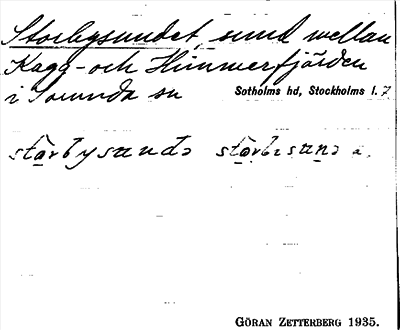 Storbysundet, sund mellan
Kagg- och Himmerfjärden
i Sorunda sn Sotholms hd, Stockholms l. 7
GÖRAN ZETTERBERG 1935.